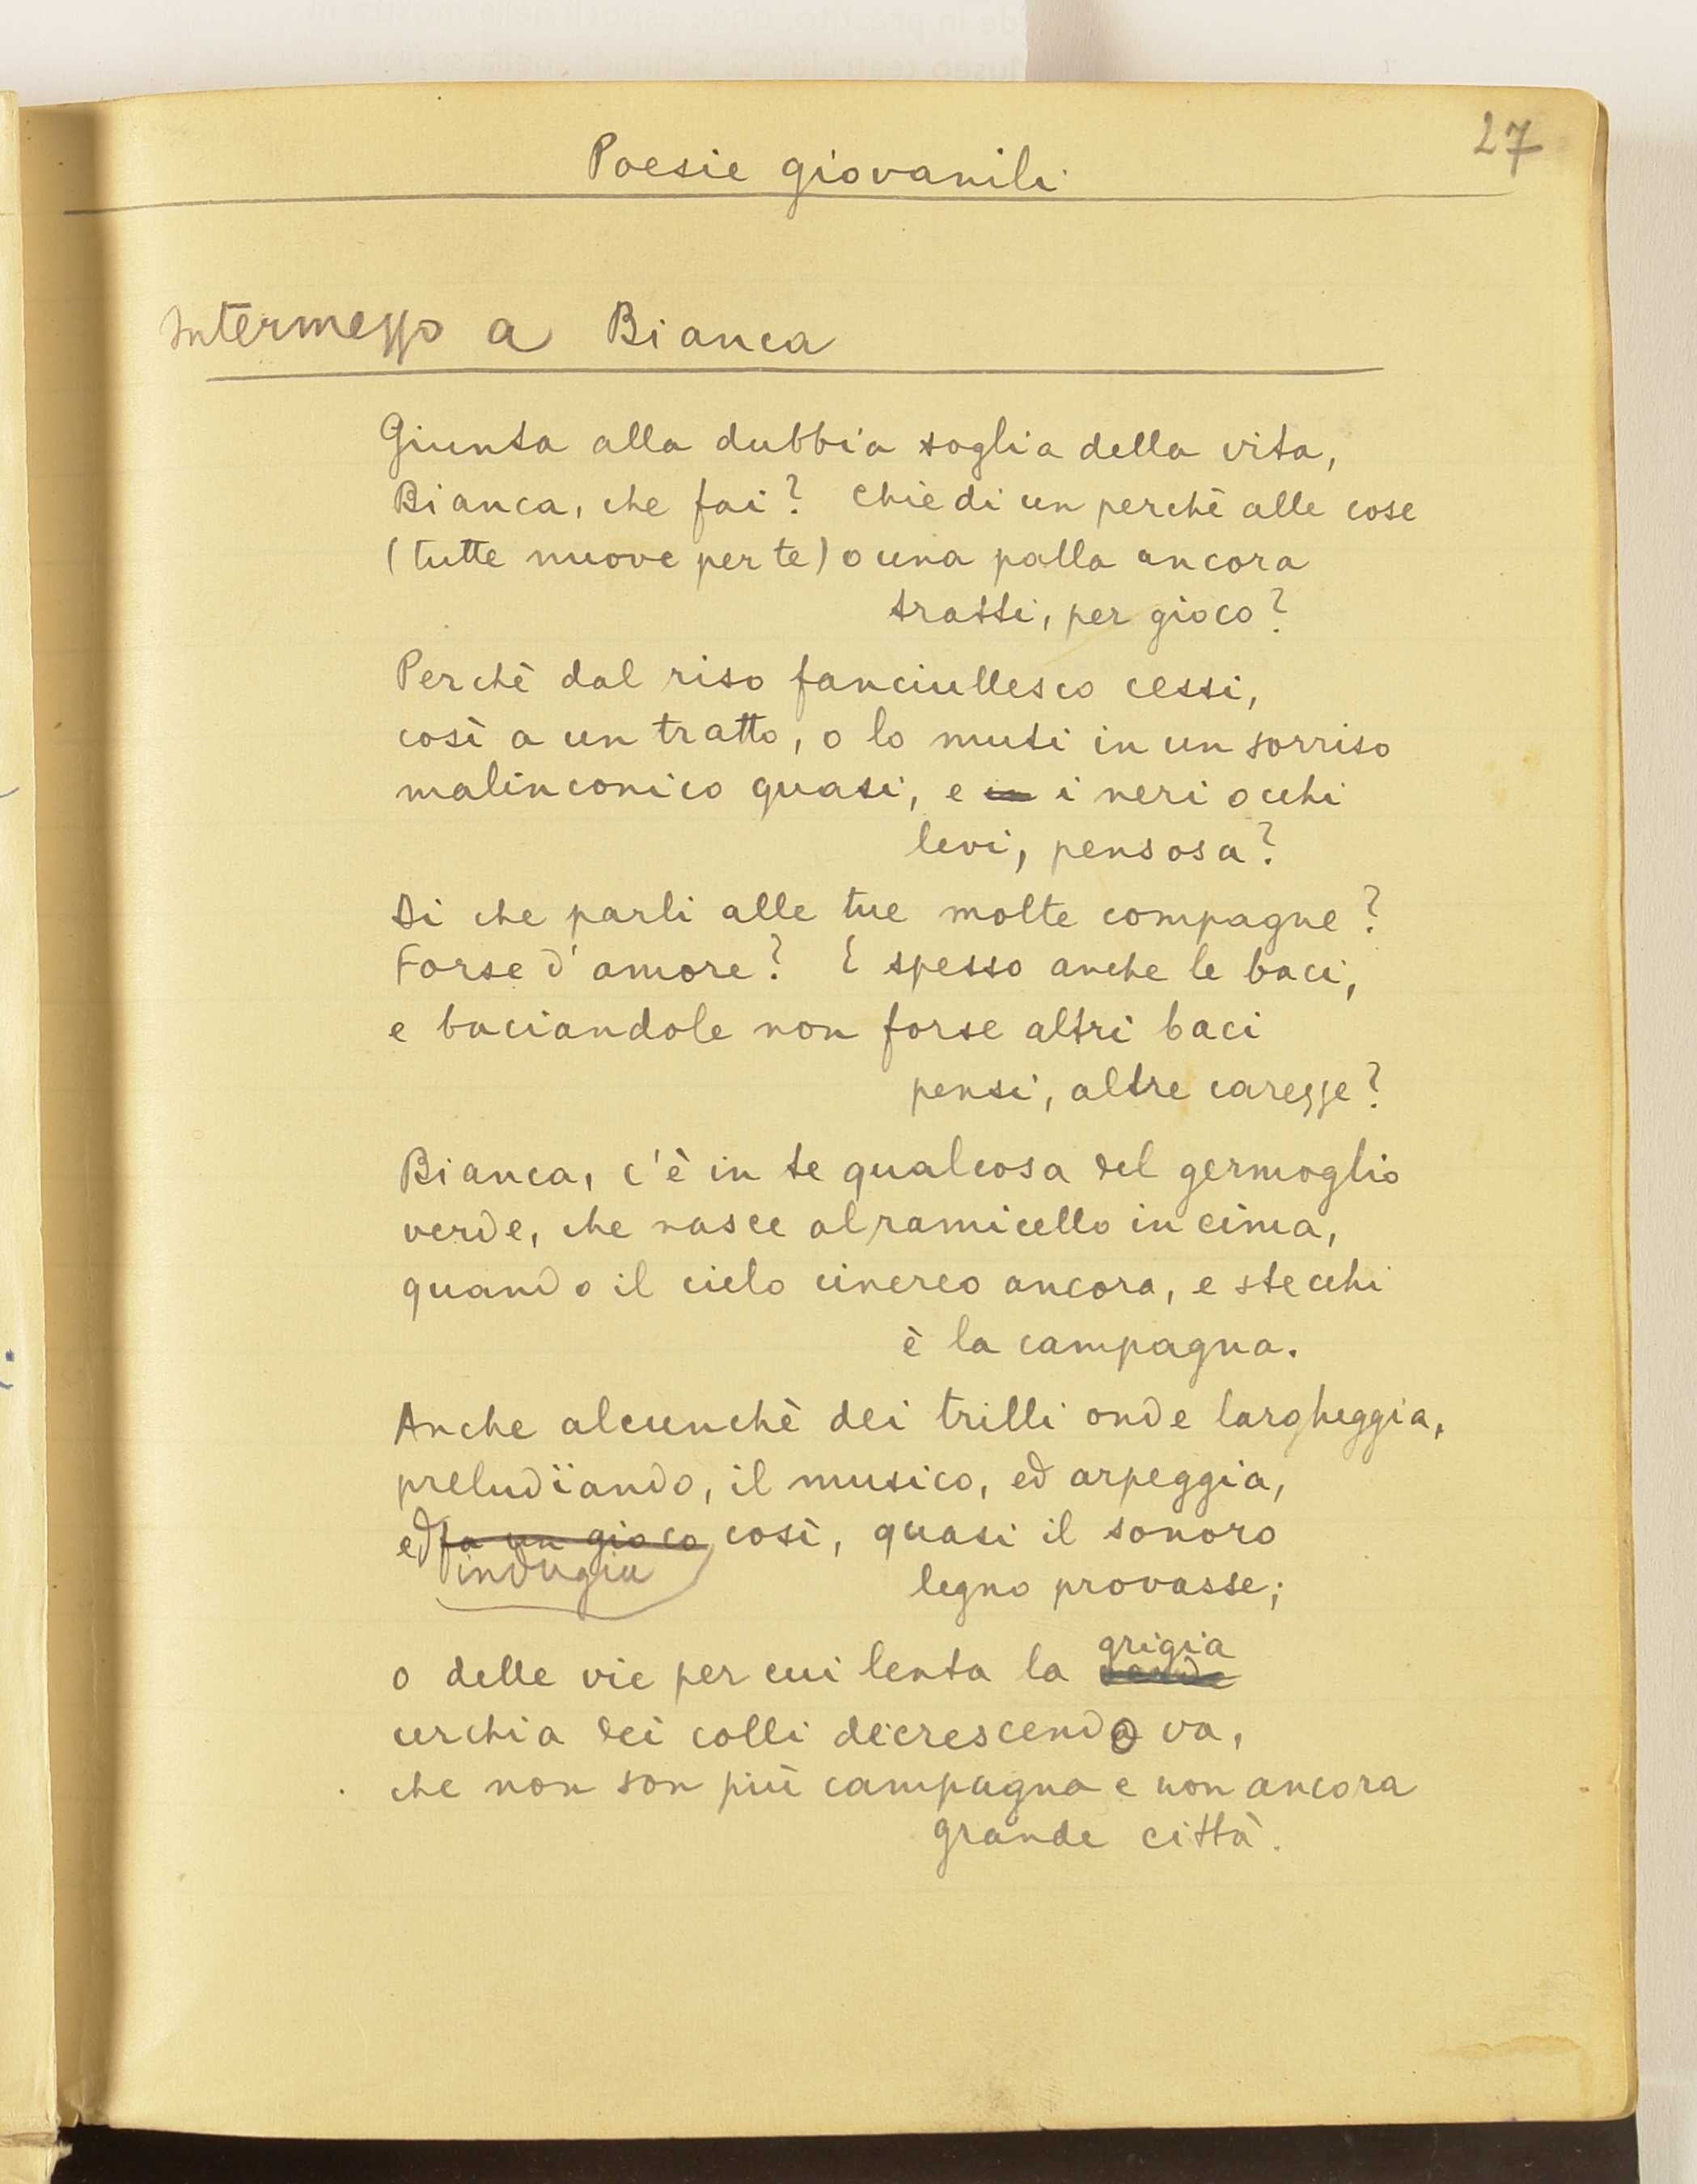 27
Poesie giovanili
Intermezzo a Bianca
Giunta alla dubbia soglia della vita,
Bianca, che fai? Chiedi un perchè alle cose
(tutte nuove per te) o una palla ancora
tratti, per gioco?
Perchè dal riso fanciullesco cessi,
così a un tratto, o lo muti in un sorriso
malinconico quasi, e in i neri occhi
levi, pensosa?
Di che parli alle tue molte compagne?
Forse d'amore? E spesso anche le baci,
e baciandole non forse altri baci
pensi, altre carezze?
Bianca, c'è in te qualcosa del germoglio
verde, che nasce al ramicello in cima,
quando il cielo cinereo ancora, e stecchi
è la campagna.
Anche alcunchè dei trilli onde largheggia,
preludïando, il musico, ed arpeggia,
ed fa un gioco così, quasi il sonoro
indugia
legno provasse;
grigia
o delle vie per cui lenta la
cerchia dei colli decrescendo va,
che non son più campagna e non ancora
grande città.